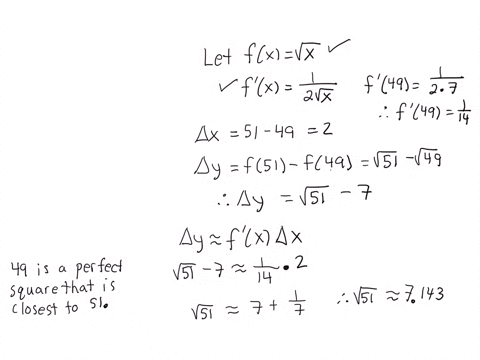 Let f(x) = √x ✓
✓ f'(x) = 1/(2√x)
f'(49) = 1/(2·7)
∴ f'(49) = 1/14
Δx = 51 - 49 = 2
Δy = f(51) - f(49) = √51 - √49
∴ Δy = √51 - 7
Δy ≈ f'(x) Δx
√51 - 7 ≈ 1/14 • 2
√51 ≈ 7 + 1/7
∴ √51 ≈ 7.143
49 is a perfect
square that is
closest to 51.